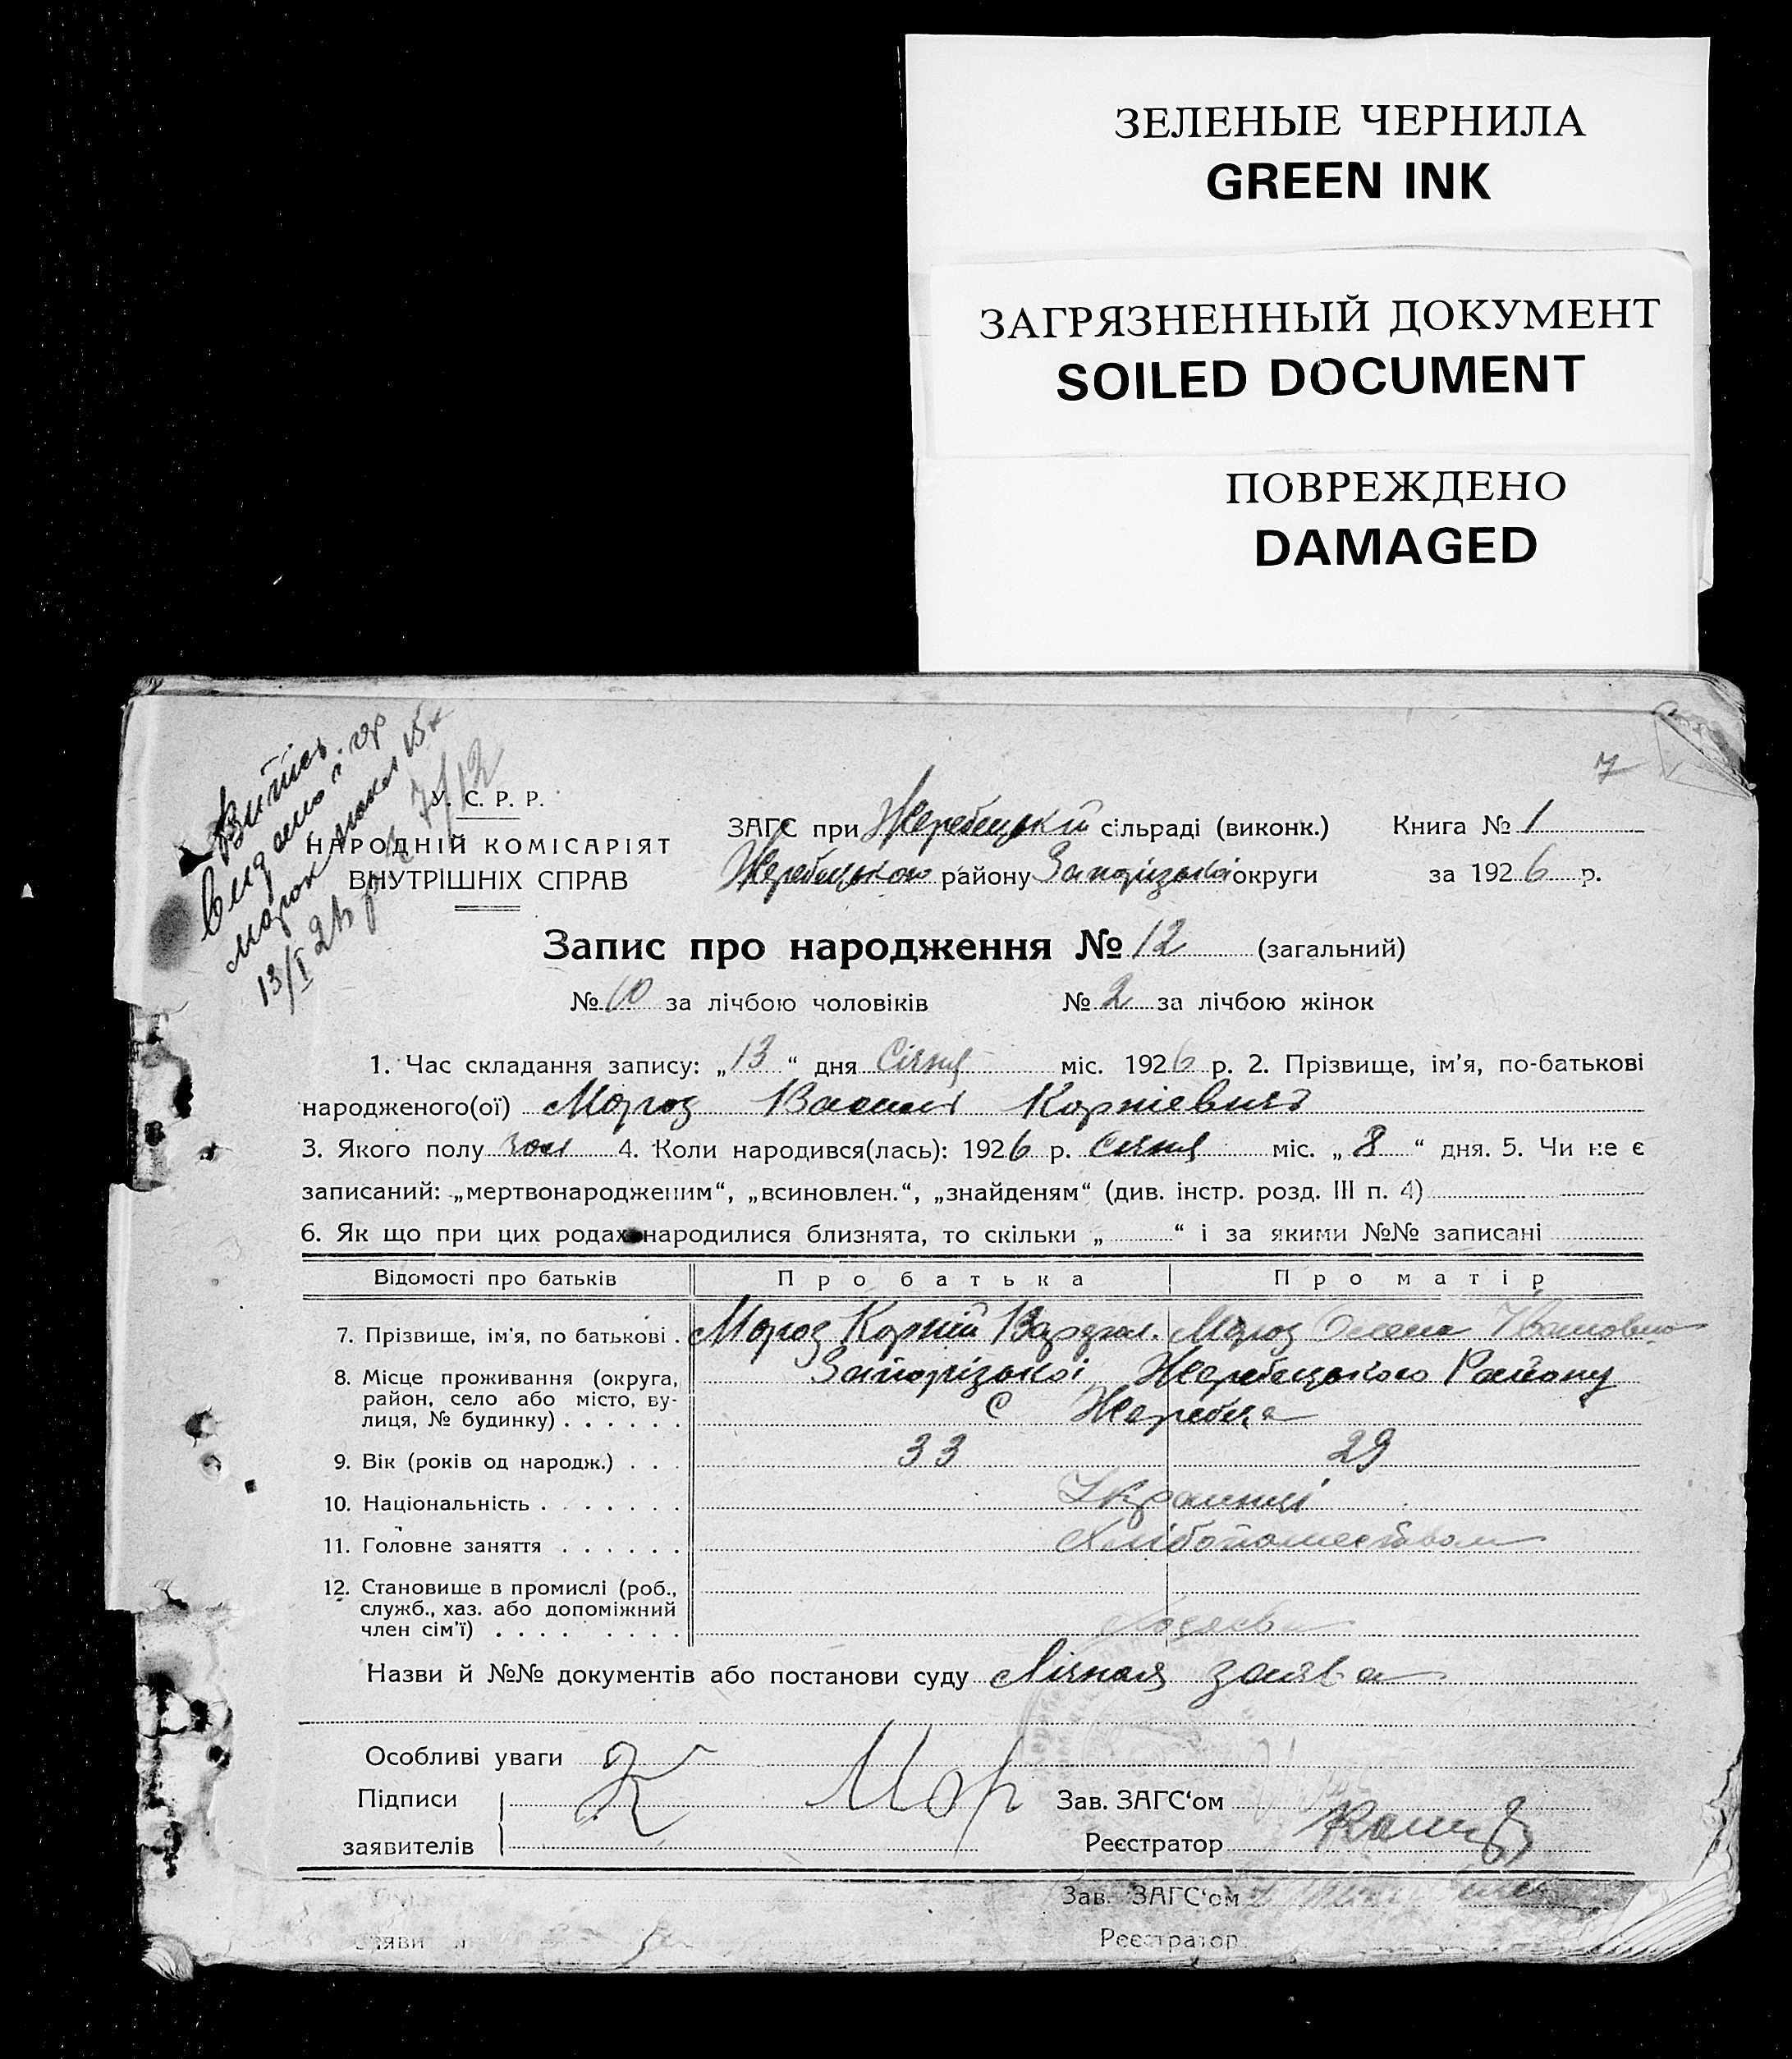 ЗЕЛЕНЫЕ ЧЕРНИЛА
GREEN INK
ЗАГРЯЗНЕННЫЙ ДОКУМЕНТ
SOILED DOCUMENT
ПОВРЕЖДЕНО
DAMAGED
7
7/12
У. С. Р. Р.
НАРОДНІЙ КОМІСАРІЯТ
ВНУТРІШНІХ СПРАВ
13/I 2
ЗАГС при Жеребецькій сільраді (виконк.) Книга № 1
Жеребецького району Запорізької округи за 1926 р.
Запис про народження № 12 (загальний)
№ 10 за лічбою чоловіків № 2 за лічбою жінок
1. Час складання запису: „13“ дня Січня міс. 1926 р. 2. Прізвище, ім’я, по-батькові
народженого(ої) Мороз Василь Корніевичь
3. Якого полу 4. Коли народився(лась): 1926 р. Січня міс. „8“ дня. 5. Чи не є
записаний: „мертвонародженим“, „всиновлен.“, „знайденям“ (див. інстр. розд. III п. 4)
6. Як що при цих родах народилися близнята, то скільки „ “ і за якими №№ записані
Відомості про батьків Про батька Про матір
7. Прізвище, ім’я, по батькові . Мороз Корній Мороз Олена Івановна
8. Місце проживання (округа, Запорізької Жеребецького Району
район, село або місто, ву-
лиця, № будинку) . . . . . . с Жеребець
9. Вік (років од народж.) . . . 33 29
10. Національність . . . . . . . Українці
11. Головне заняття . . . . . .
12. Становище в промислі (роб.,
служб., хаз. або допоміжний
член сім’ї) . . . . . . . .
Назви й №№ документів або постанови суду Лічная заява
Особливі уваги
Підписи К Мор Зав. ЗАГС‘ом
заявителів Реєстратор
Зав. ЗАГС‘ом
Реєстратор